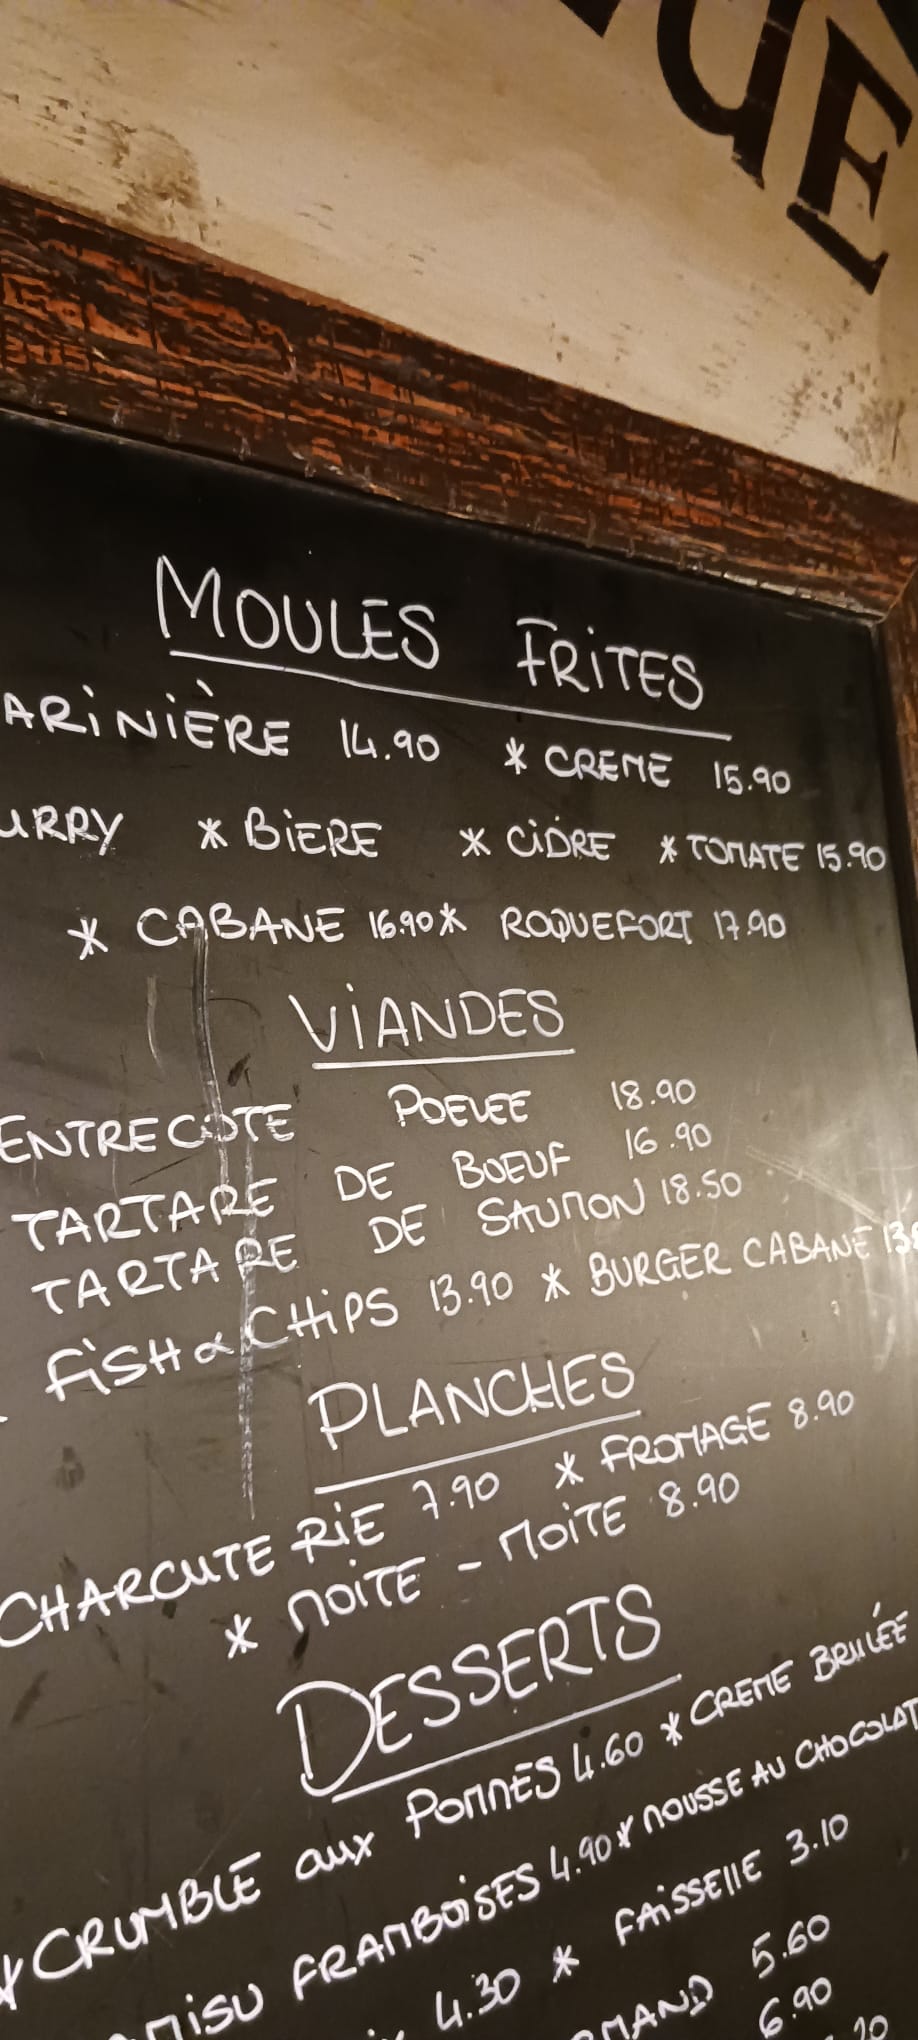 UE
ARINIÈRE 14.90 * CREME 15.90
MOULES FRITES
URRY * BIERE * CIDRE * TOMATE 15.90
* CABANE 16.90 * ROQUEFORT 17.90
VIANDES
ENTRECOTE POELEE 18.90
TARTARE DE BOEUF 16.90
TARTARE DE SAUMON 18.50
FISH & CHIPS 13.90 * BURGER CABANE 13.
PLANCHES
CHARCUTERIE 7.90 * FROMAGE 8.90
* MOITE - MOITE 8.90
DESSERTS
* CRUMBLE aux POMMES 4.60 * CREME BRULÉE
MISU FRAMBOISES 4.90 * MOUSSE AU CHOCOLAT
4.30 * FAISSELLE 3.10
RMAND 5.60
6.90